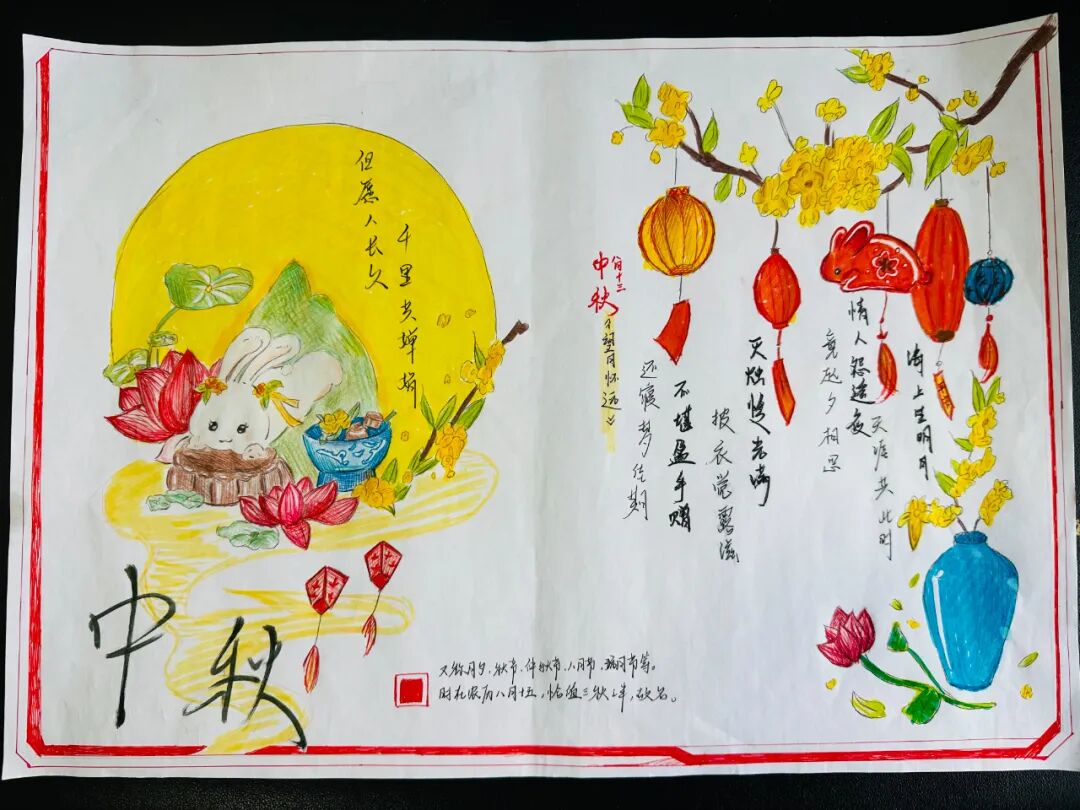 但愿人长久
千里共婵娟
中秋
海上生明月
天涯共此时
情人怨遥夜
竟起夕相思
灭烛怜光满
披衣觉露滋
不堪盈手赠
还寝梦佳期
中秋
《望月怀远》
又称月夕、秋节、仲秋节、八月节、玩月节等。
时在农历八月十五，恰值三秋之半，故名。